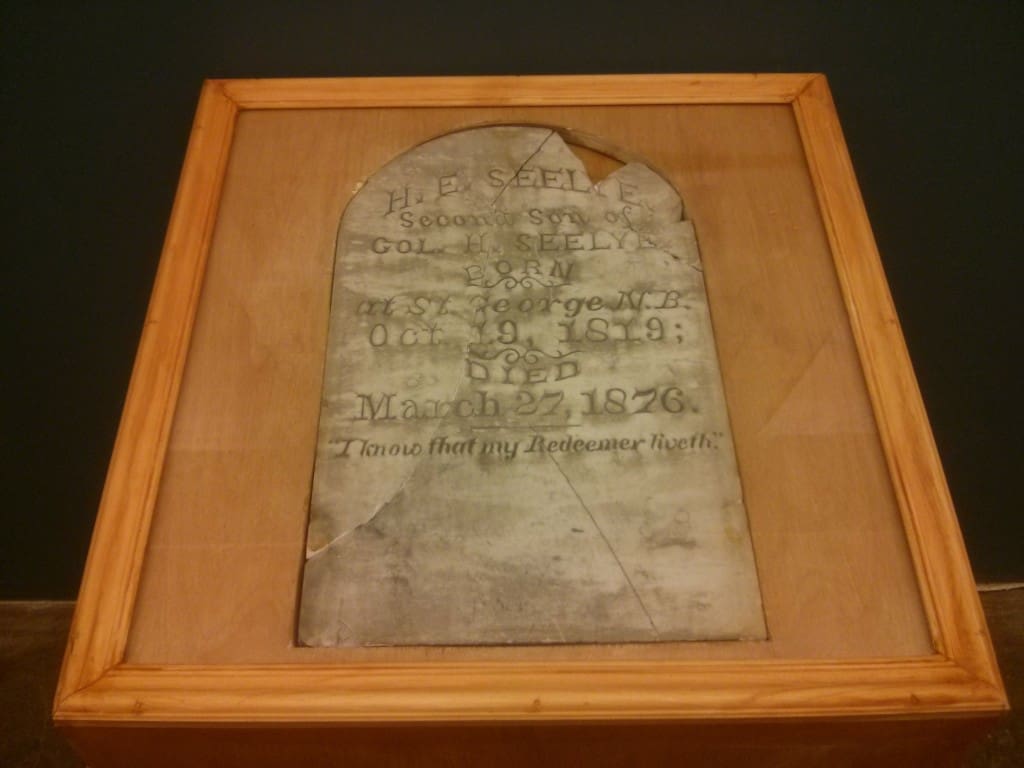 H. E. SEELYE.
Second Son of
COL. H. SEELYE
BORN
at St. George N.B.
Oct 19, 1819;
DIED
March 27, 1876.
"I know that my Redeemer liveth."